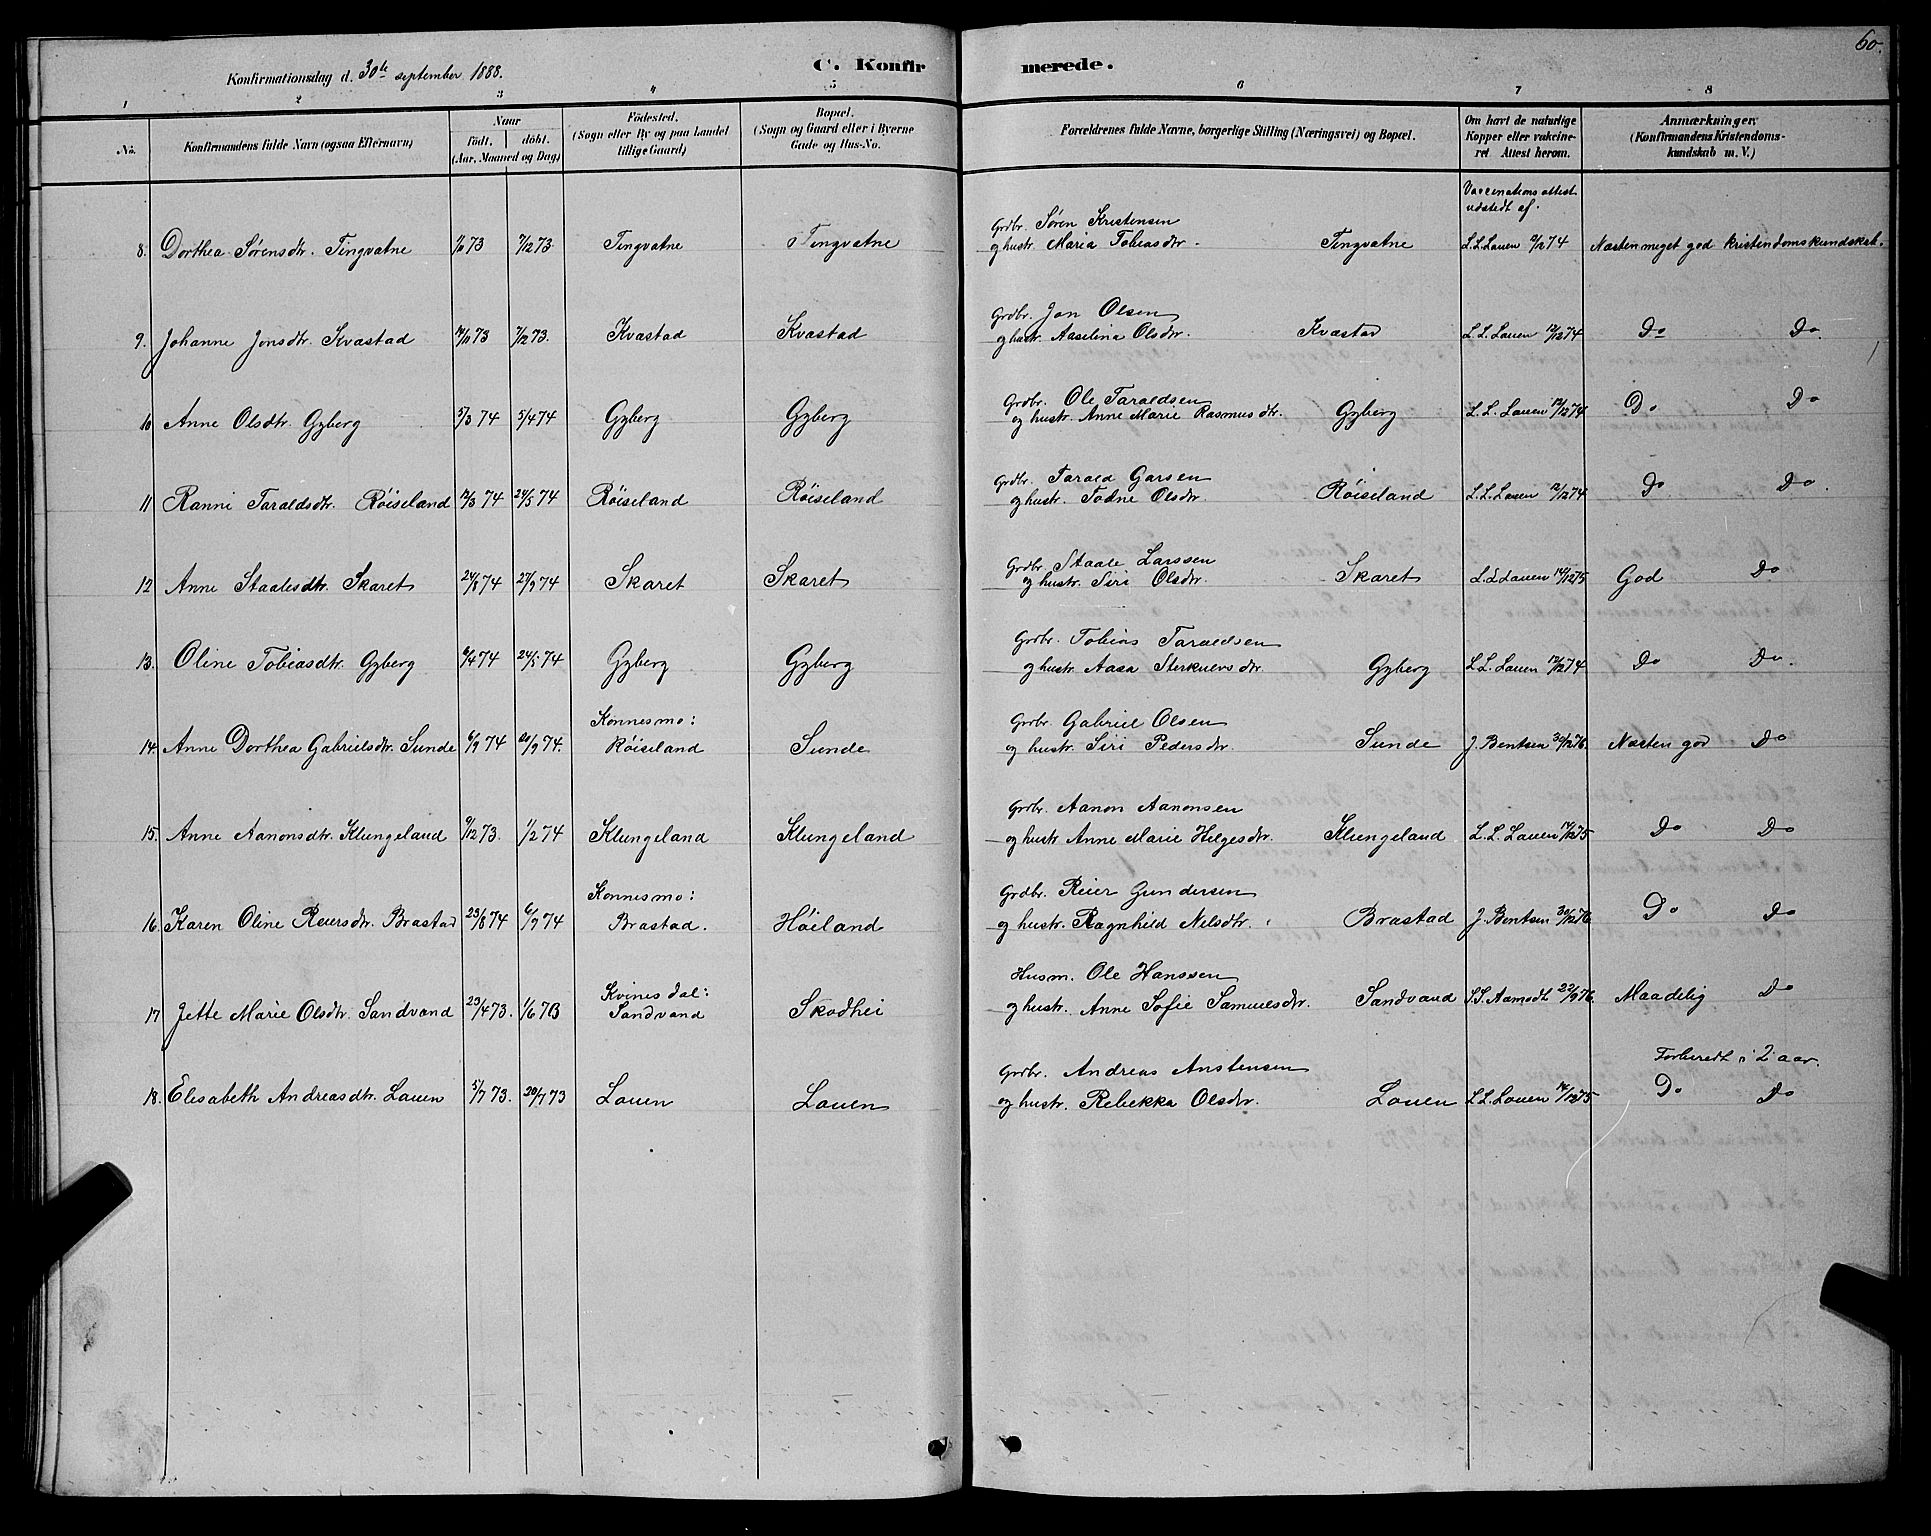 60.
Konfirmationsdag d. 30te september 1888.
C. Konfirmerede.
1 2 3 4 5 6 7 8
No. Konfirmandens fulde Navn (ogsaa Efternavn) Naar födt, döbt. (Aar, Maaned og Dag) Födested. (Sogn eller By og paa Landet tillige Gaard) Bopæl. (Sogn og Gaard eller i Byerne Gade og Hus-No. Forældrenes fulde Navne, borgerlige Stilling (Næringsvei) og Bopæl. Om havt de naturlige Kopper eller vakcineret Attest herom. Anmærkninger (Konfirmandens Kristendomskundskab m. V.)
Vaccinations attest udstedt af.
Grdbr. Søren Kristensen
8. Dorthea Sørensdtr. Tingvatne 73 7/12 73 Tingvatne Tingvatne og hustr. Maria Tobiasdtr. Tingvatne L.L. Lauen 74 Næsten meget god kristendomskundskab.
Grdbr. Jon Olsen
9. Johanne Jonsdtr. Kvastad 73 7/12 73. Kvastad Kvastad og hustr. Aaselina Olsdtr. Kvastad L.L. Lauen 12/12 74 Do Do
Grdbr. Ole Taraldsen
10 Anne Olsdtr. Gyberg 5/3 74 5/4 74 Gyberg Gyberg og hustr. Anne Marie Rasmusdtr. Gyberg L.L. Lauen 12/12 74 Do Do
Grdbr. Tarald Garsen
11 Ranni Taraldsdtr. Røiseland 12/3 74 24/5 74 Røiseland Røiseland og hustr. Todne Olsdtr. Røiseland L.L. Lauen 12/12 74 Do Do.
Grdbr. Staale Larssen
12 Anne Staalesdtr. Skaret 24/8 74 27/9 74 Skaret Skaret og hustr. Siri Olsdtr. Skaret L.L. Lauen 14/12 75 God Do
Grdbr. Tobias Taraldsen
13. Oline Tobiasdtr. Gyberg 9/4 74 24/5 74 Gyberg Gyberg og hustr. Aasa Sterkulvsdtr. Gyberg L.L. Lauen 12/12 74 Do Do.
Konnesmo: Grdbr. Gabriel Olsen
14. Anne Dorthea Gabrielsdtr. Sunde 6/9 74 20/9 74. Røiseland Sunde og hustr. Siri Pedersdtr. Sunde J. Bentsen 30/12 76. Næsten god Do
Grdbr. Aanon Aanonsen
15. Anne Aanonsdtr. Klungeland 9/12 73. 1/2 74 Klungeland Klungeland og hustr. Anne Marie Helgesdtr. Klungeland L.L. Lauen 14/12 75 Do Do
Konnesmo: Grdbr. Reier Gundersen
16. Karen Oline Reiersdtr. Brastad 23/8 74 6/9 74 Brastad. Høiland og hustr. Ragnhild Nilsdtr. Brastad J. Bentsen 30/12 76 Do Do
Kvinesdal: Husm. Ole Hanssen
17 Jette Marie Olsdtr. Sandvand 23/4 73. 1/6 73 Sandvand Skodhei og hustr. Anne Sofie Samuelsdtr. Sandvand S.S. Aamodt 22/9 76. Maadelig Do
Grdbr. Andreas Anstensen Forberedt i 2 aar.
18. Elisabeth Andreasdtr. Lauen 5/7 73. 20/7 73 Lauen Lauen og hustr. Rebekka Olsdtr. Lauen L.L. Lauen 14/12 75 Do Do